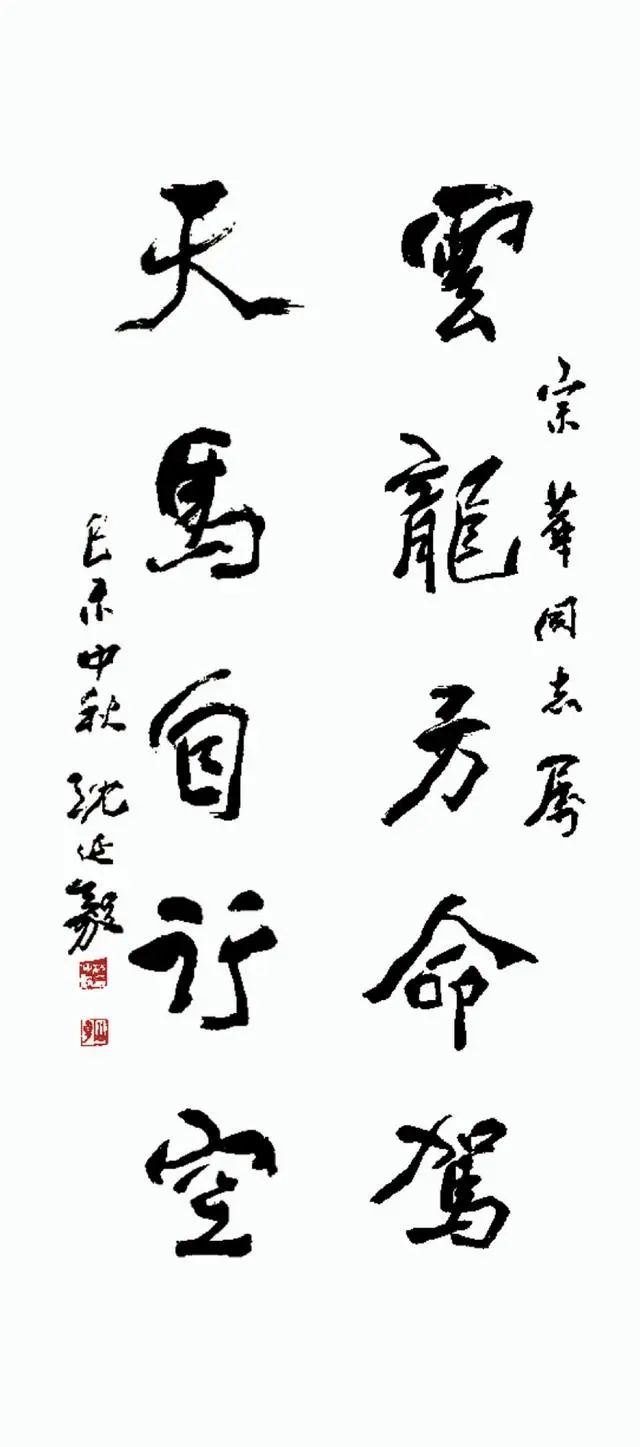 宗華同志屬
雲龍方命駕
天馬自行空
己未中秋沈延毅